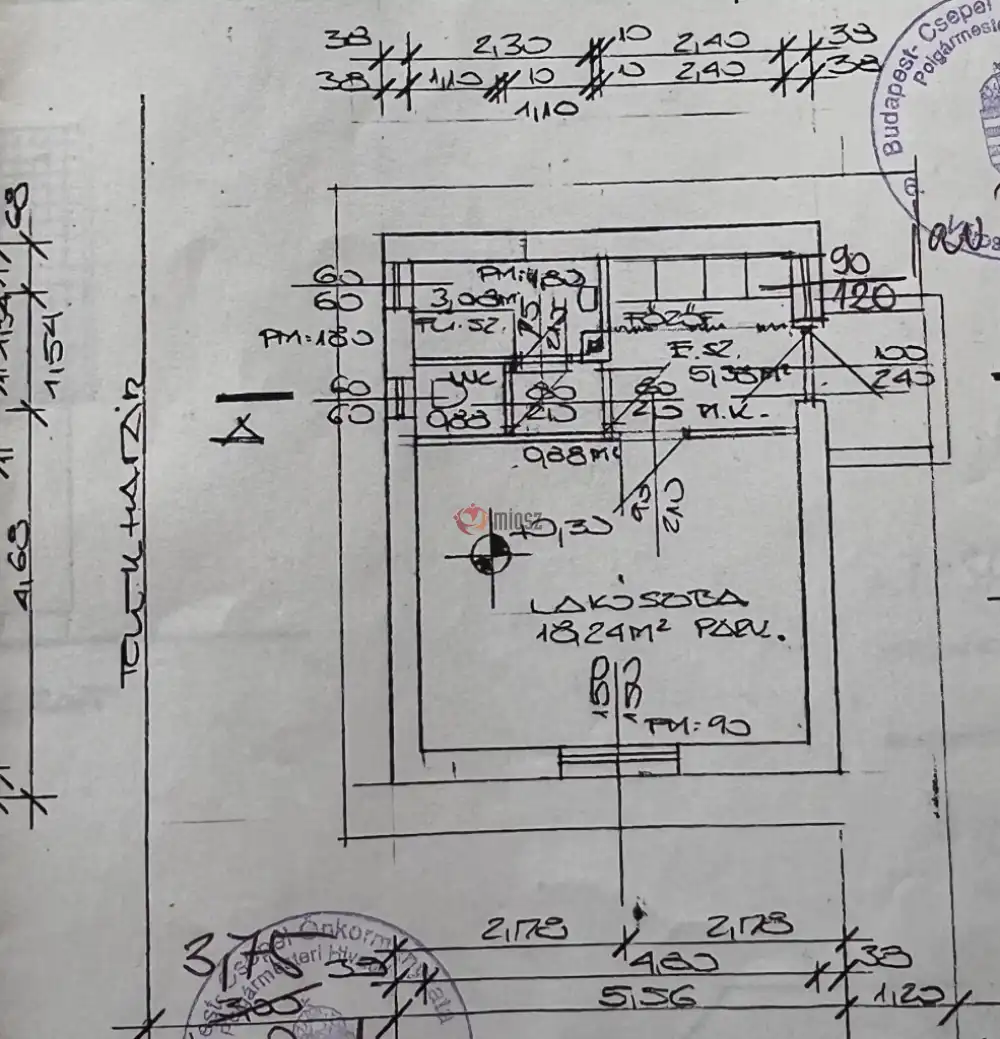 38 2,30 10 2,40 38
38 1,10 10 10 2,40 38
1,10
Budapest-Csepel
Polgármesteri
68
1,54
4,68
TELEKHATÁR
A
60
60
PM:180
60
60
PM:180
3,08m²
FÜ.SZ.
75
210
FŐZŐF.
90
120
E.SZ.
5,38m²
M.K.
100
240
WC
0,88
80
210
80
210
0,88m²
90
210
miosz
+0,30
LAKÓSZOBA
18,24m² PARK.
150
150
PM:90
2,78 2,78
38 4,80 38
3,75
3,00
5,56 1,20
Csepel Önkormányzata
Polgármesteri Hivatal